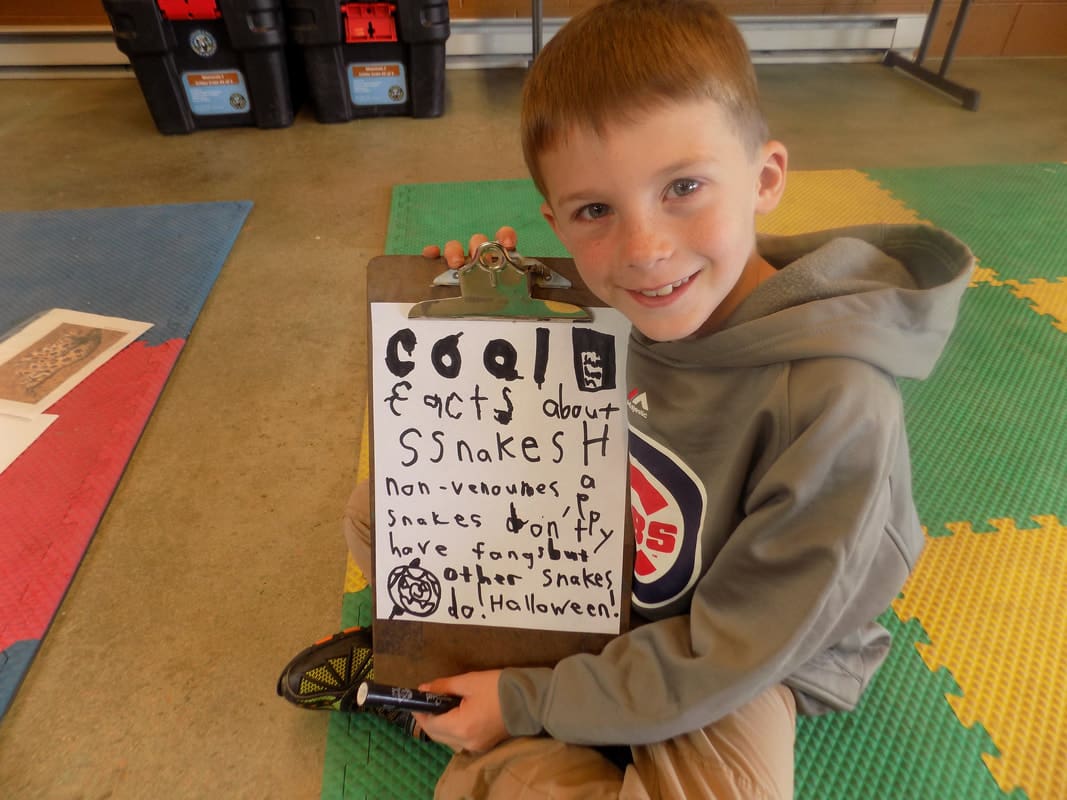 cool
facts about
SSnakes
non-venoumes
snakes don't
have fangs but
other snakes
do!
Happy
Halloween!